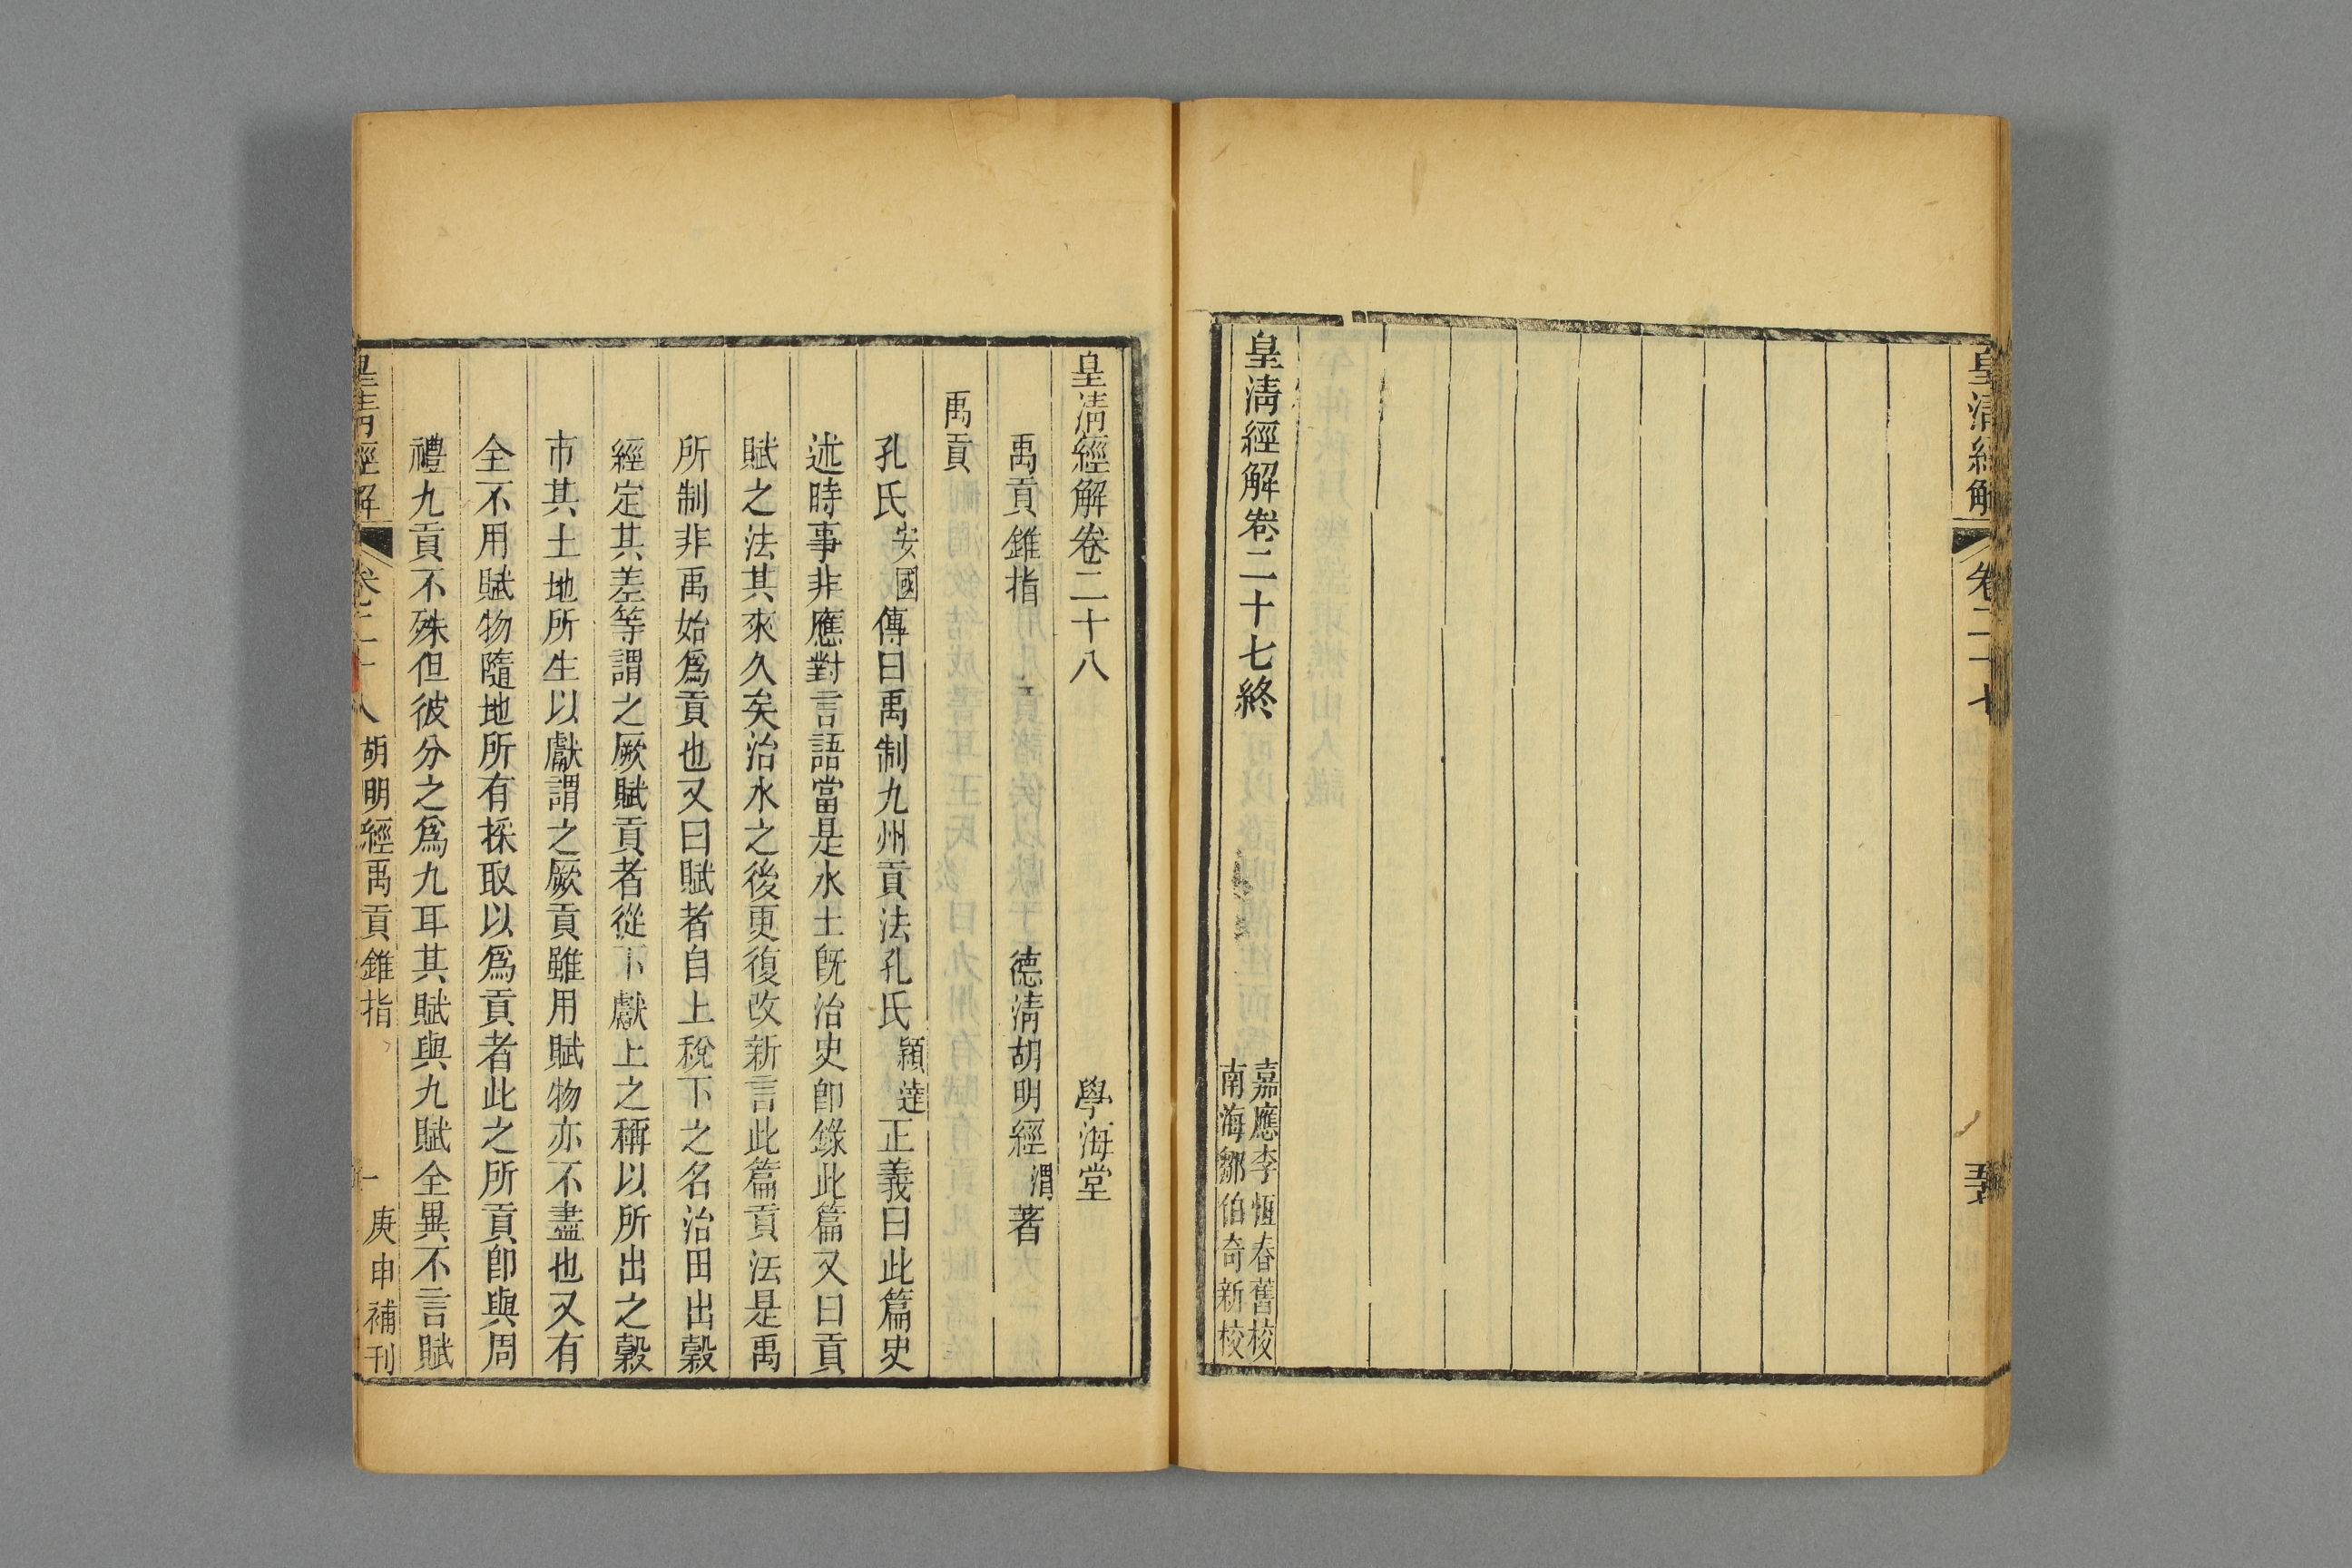 皇清經解
卷二十七
皇清經解卷二十七終
嘉應李恆春舊校
南海鄒伯奇新校
皇清經解卷二十八
學海堂
禹貢錐指
德清胡明經渭著
禹貢
孔氏安國傳曰禹制九州貢法孔氏穎達正義曰此篇史
述時事非應對言語當是水土既治史卽錄此篇又曰貢
賦之法其來久矣治水之後更復改新言此篇貢法是禹
所制非禹始爲貢也又曰賦者自上稅下之名治田出穀
經定其差等謂之厥賦貢者從下獻上之稱以所出之穀
市其土地所生以獻謂之厥貢雖用賦物亦不盡也又有
全不用賦物隨地所有採取以爲貢者此之所貢卽與周
禮九貢不殊但彼分之爲九耳其賦與九賦全異不言賦
皇清經解
卷二十八
胡明經禹貢錐指
一
庚申補刊